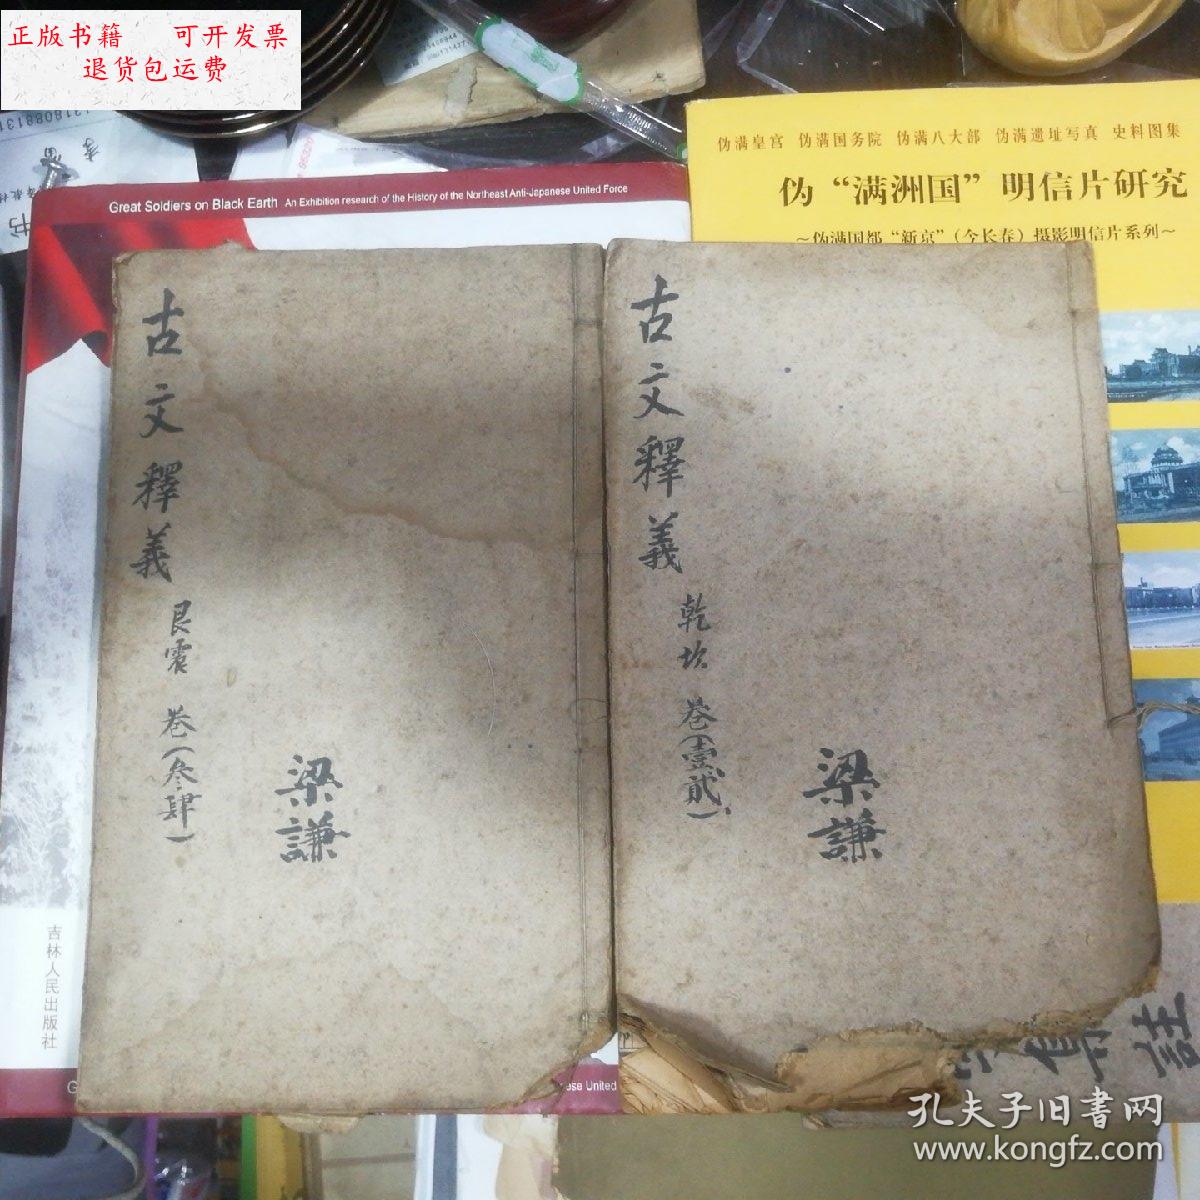 正版书籍 可开发票
退货包运费
Great Soldiers on Black Earth An Exhibition research of the History of the Northeast Anti-Japanese United Force
伪满皇宫 伪满国务院 伪满八大部 伪满遗址写真 史料图集
伪“满洲国”明信片研究
～伪满国都“新京”（今长春）摄影明信片系列～
古文釋義
艮震
卷(叁肆)
梁謙
古文釋義
乾坎
卷(壹貳)
梁謙
吉林人民出版社
註
孔夫子旧书网
www.kongfz.com